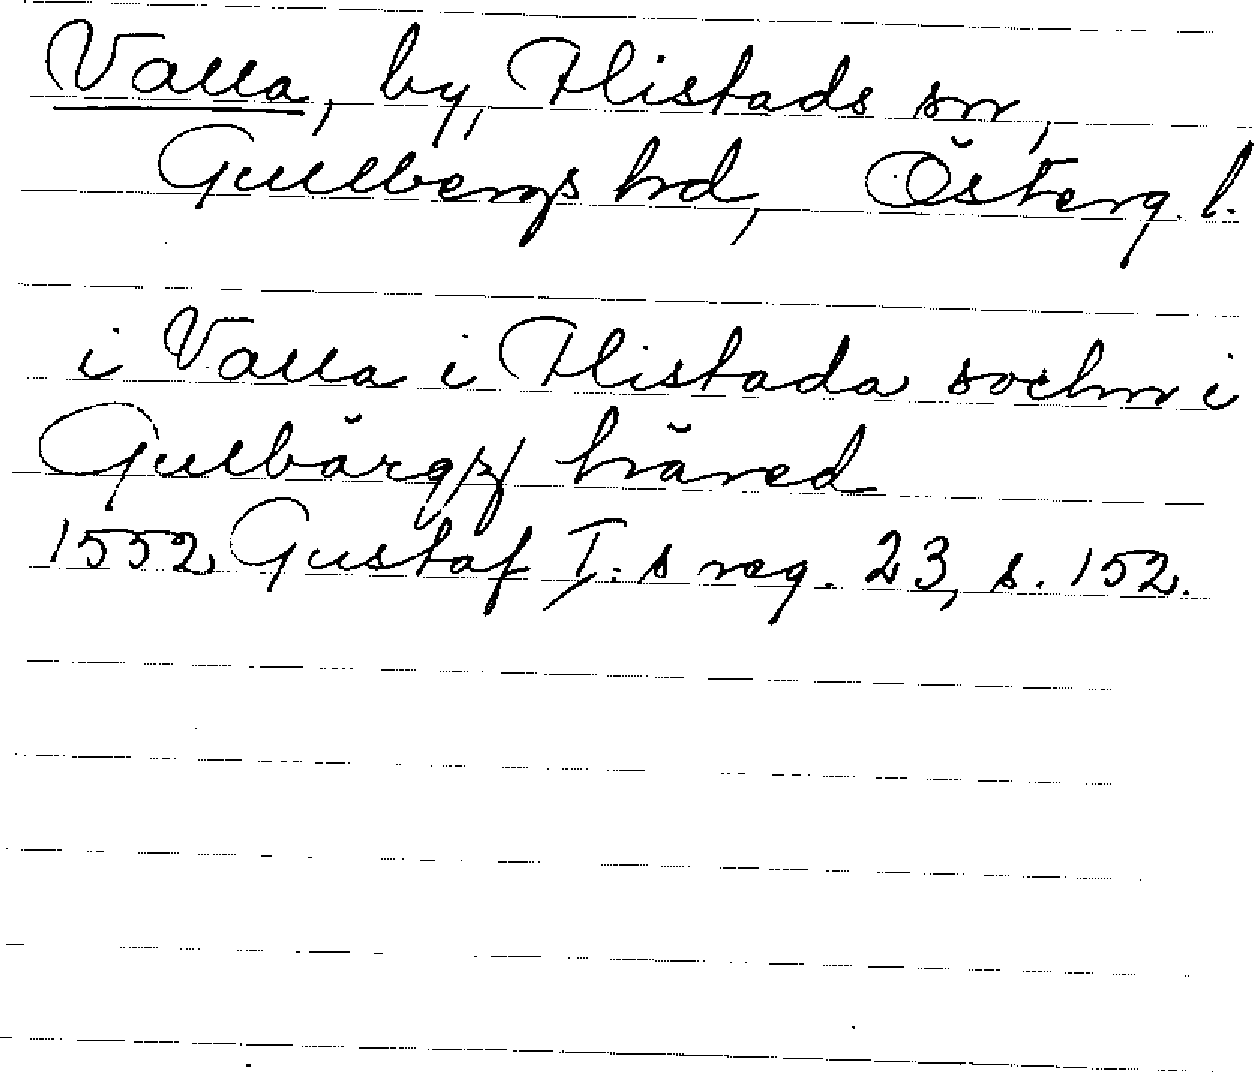 Valla, by, Flistads sn,
Gullbergs hrd, Österg. l.
i Valla i Flistada sochn i
Gulbärgz häred
1552 Gustaf I:s reg. 23, s. 152.